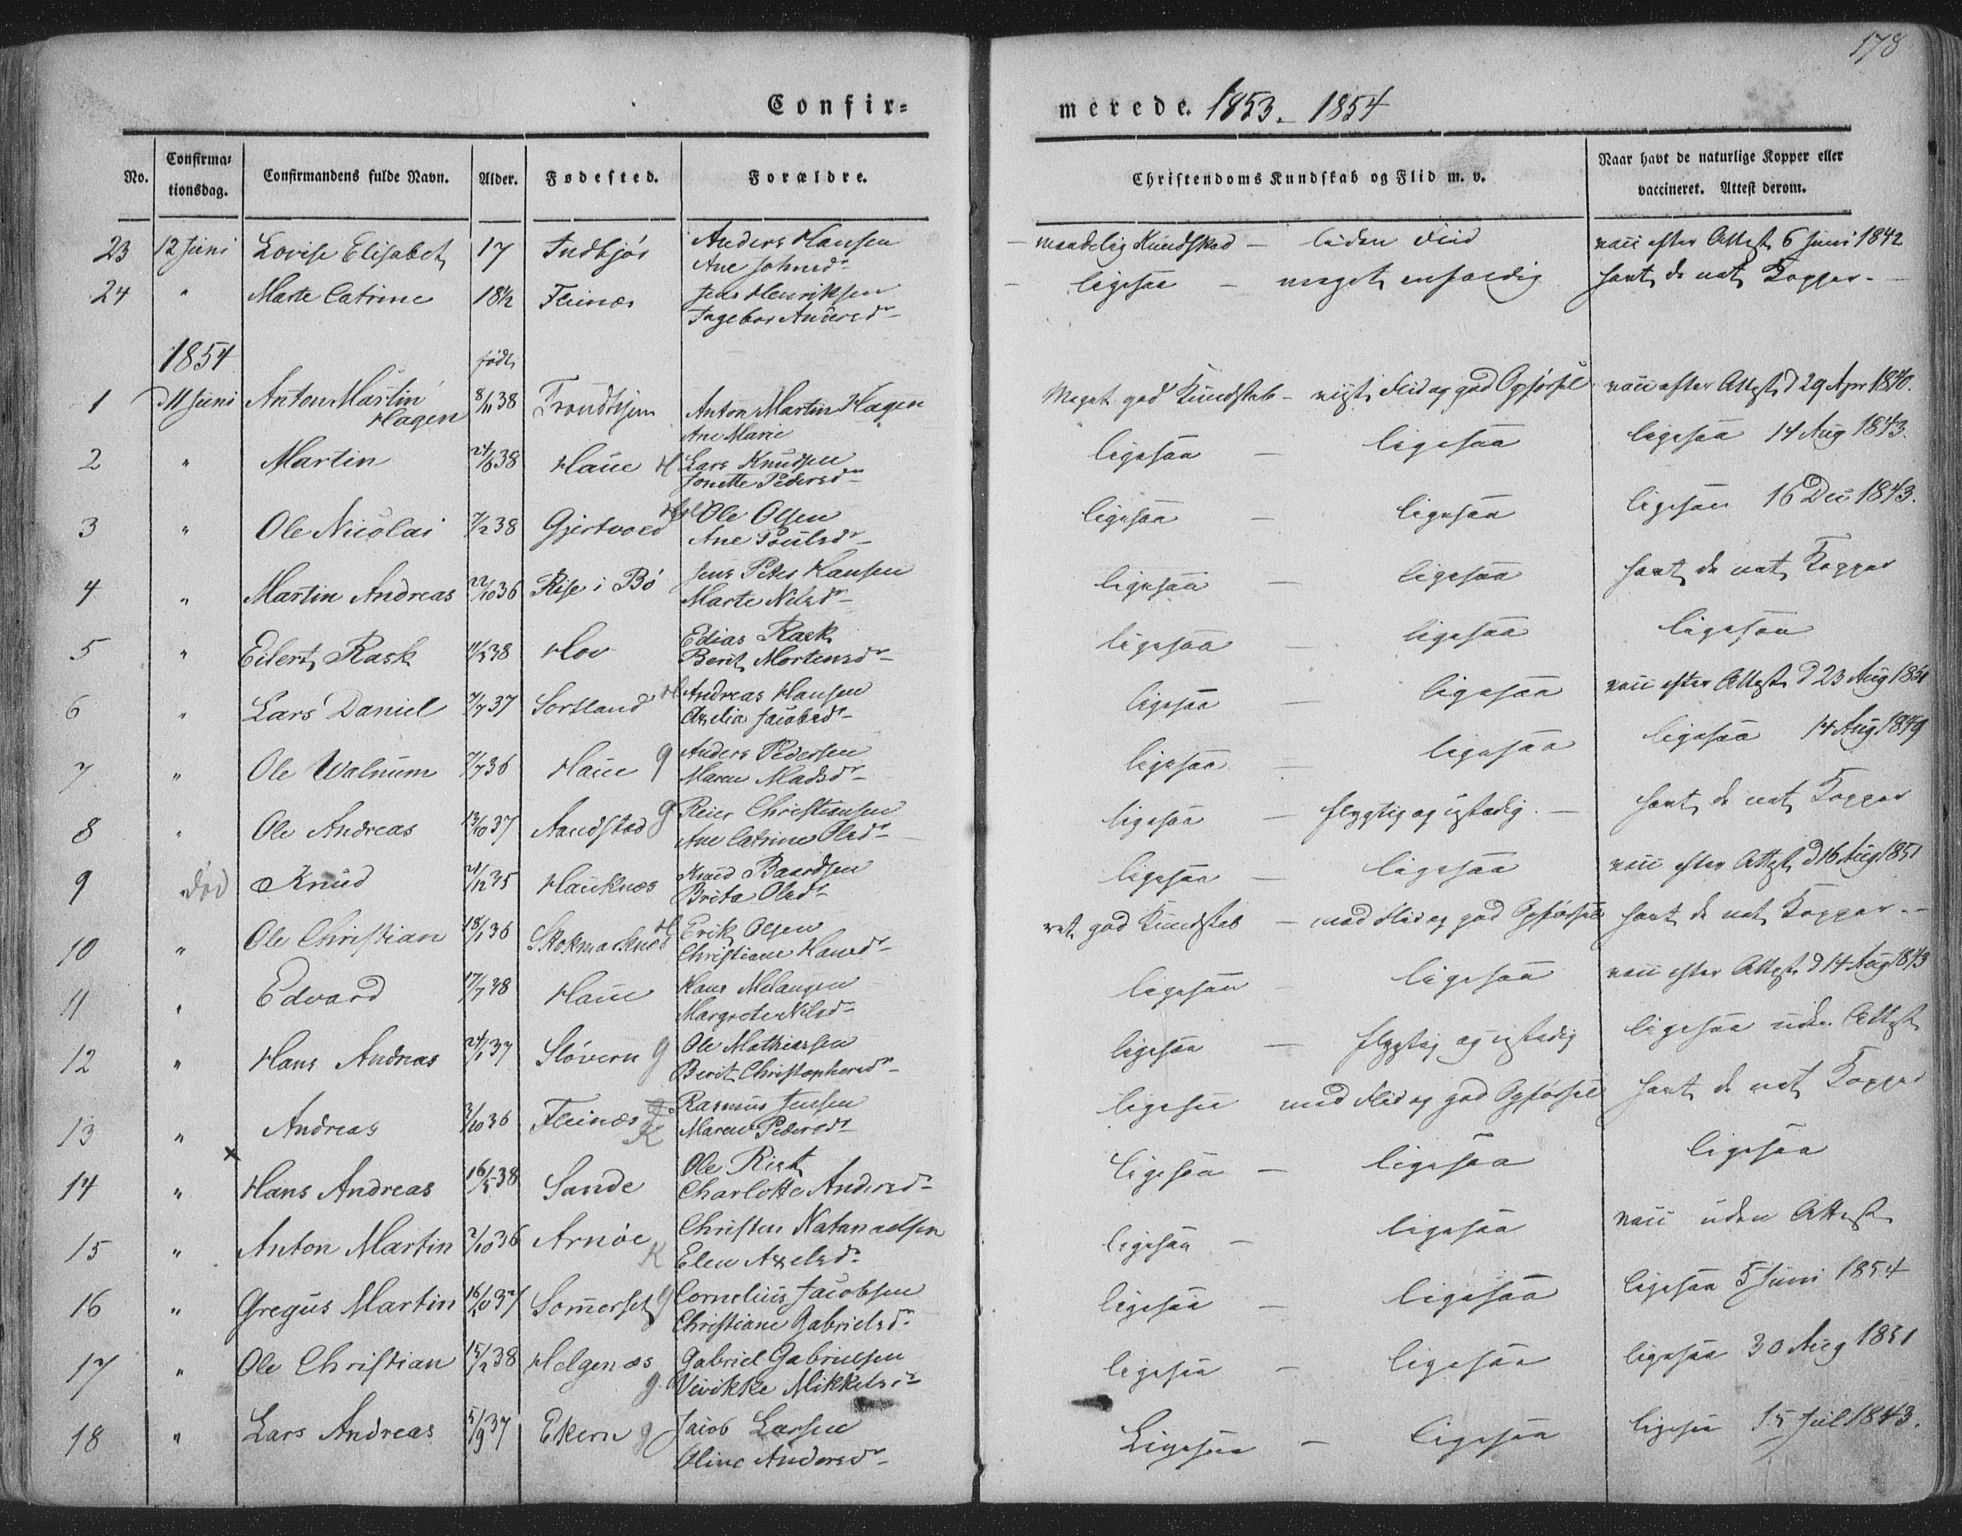 178
Confir-
merede. 1853. 1854
No.
Confirma-
tionsdag.
Confirmandens fulde Navn.
Alder.
Fødested.
Forældre.
Christendoms Kundskab og Flid m. v.
Naar havt de naturlige Kopper eller
vaccineret. Attest derom.
23 12 Juni Lovise Elisabet 17 Indbjør Anders Hansen
Ane Johnsdr
maadelig Kundskab — liden Flid vacc efter Attest 6 Juni 1842
24 " Marte Catrine 18½ Fleinæs Jens Henriksen
Ingebor Andersdr
ligesaa — meget enfoldig havt de nat Kopper
1854 født
1 11 Juni Anton Martin
Hagen 8/11 38 Trondhjem Anton Martin Hagen
Ane Marie
Meget god Kundskab — Flid og god Opførsel vacc efter Attest d 29 Apr 1840.
2 " Martin 38 Haue H Lars Knudsen
Jonette Pedersdr
ligesaa — ligesaa ligesaa 14 Aug 1843.
3 " Ole Nicolai 7/2 38 Gjertvold Ole Olsen
Ane Poulsdr
ligesaa — ligesaa ligesaa 16 Dec 1843.
4 " Martin Andreas 22/10 36 Rise i Bø Jens Peter Hansen
Marte Nilsdr
ligesaa — ligesaa havt de nat Kopper
5 " Eilert Rask 38 Hov Edias Rask
Berit Mortensdr
ligesaa — ligesaa ligesaa
6 " Lars Daniel 7/7 37 Sortland H Andreas Hansen
Jacobsdr
ligesaa — ligesaa vacc efter Attest d 23 Aug
7 " Ole Walnum 7/7 36 Haue g Anders Pedersen
Maren Madsdr
ligesaa — ligesaa ligesaa 14 Aug 1849
8 " Ole Andreas 13/10 37 Aandstad g Reier Christiansen
Ane Catrine Olsdr
ligesaa — flygtig og ustadig. — havt de nat Kopper
9 død Knud 35 Hauknæs Knud Baardsen
Brita Olsdr
ligesaa — ligesaa vacc efter Attest d 16 Aug 1851
10 " Ole Christian 18/1 36 Stokmarknæs H Erik Olsen
Christiane Hansdr
ret god Kundskab — med Flid og god Opførsel havt de nat Kopper
11 " Edvard 17/7 38 Haue Hans Melangen
Margrete Nilsdr
ligesaa — ligesaa vacc efter Attest d 14 Aug 1843
12 " Hans Andreas 24/1 37 Sløvern g Ole Mathiassen
Berit Christophersdr
ligesaa — flygtig og ustadig ligesaa uden Attest
13 " Andreas 3/10 36 Fleinæs g
K Rasmus Jensen
Maren Pedersdr
ligesaa med Flid og god Opførsel havt de nat Kopper
x
14 " Hans Andreas 16/5 38 Sande Ole Rist
Charlotte Andersdr
ligesaa — ligesaa ligesaa
15 " Anton Martin 2/10 36 Arnøe K Christen Natanaelsen
Elen Axelsdr
ligesaa — ligesaa vacc uden Attest
16 " Gregus Martin 16/10 37 Somerset g Cornelius Jacobsen
Christiane Gabrielsdr
ligesaa — ligesaa ligesaa 5 Juni 1854
17 " Ole Christian 15/2 38 Helgenæs g Gabriel Gabrielsen
Vivikke Mikkelsdr
ligesaa — ligesaa ligesaa 30 Aug 1851
18 " Lars Andreas 5/9 37 Ekern g Jacob Larsen
Oline Andersdr
Ligesaa — ligesaa ligesaa 15 Jul 1843.